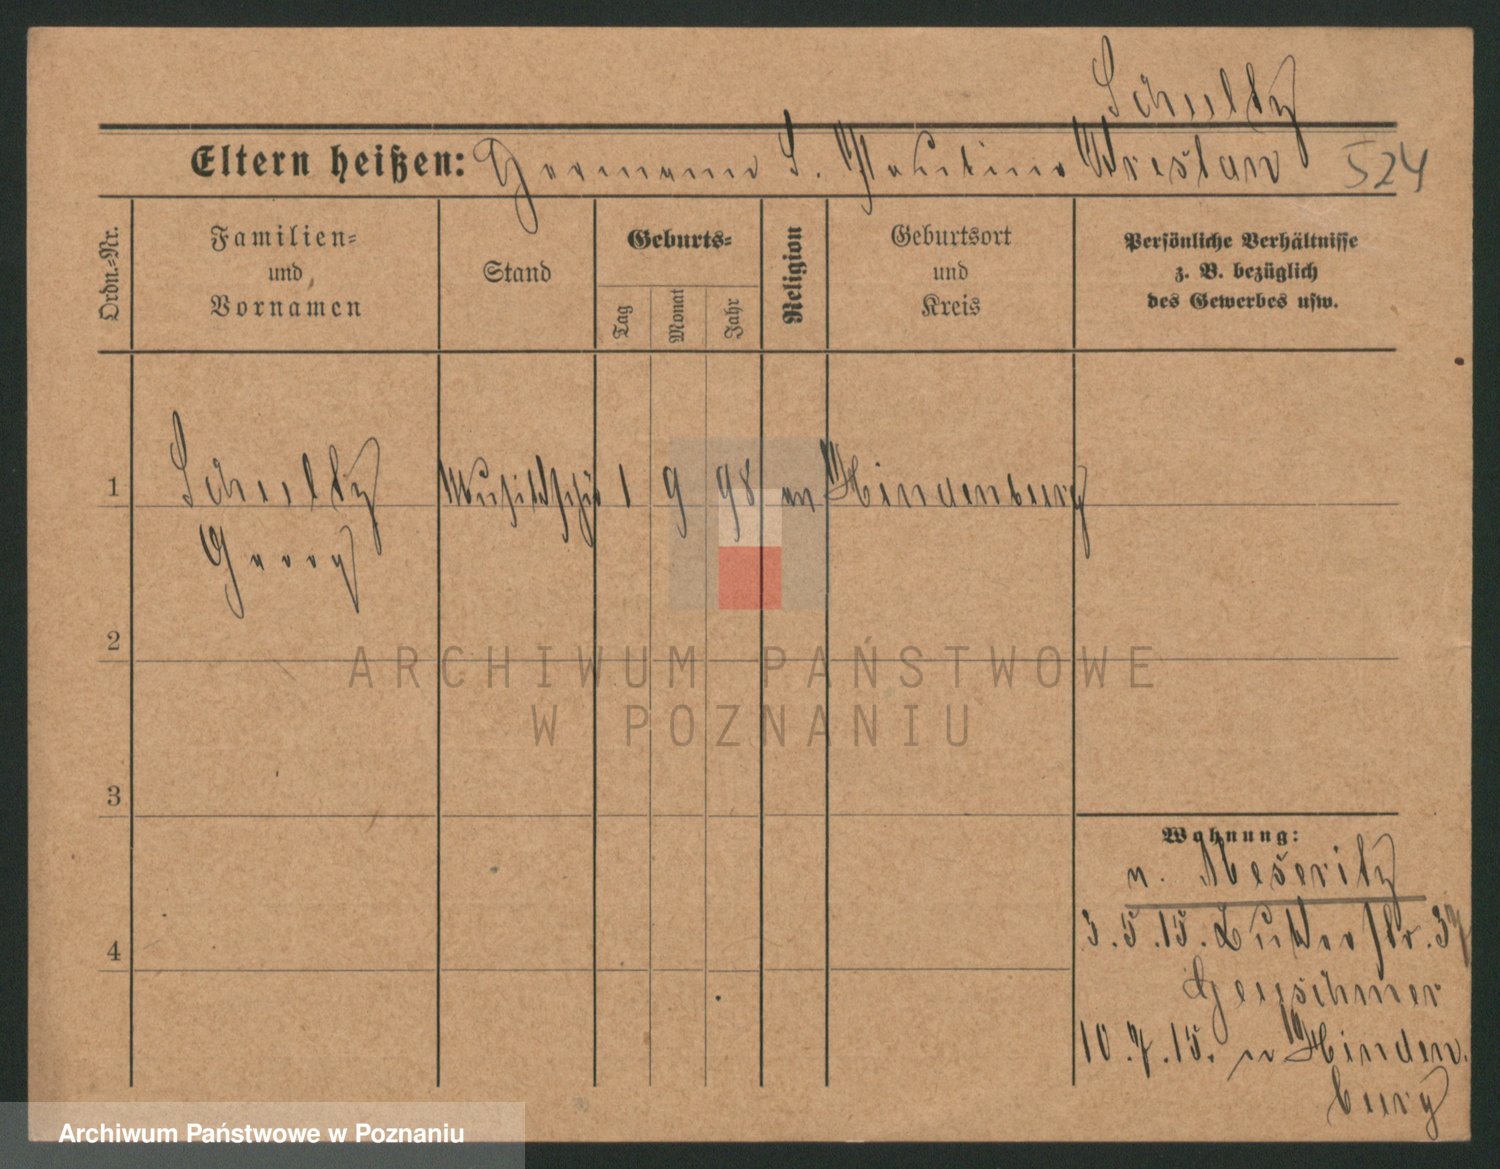 Schultz
Eltern heißen: Hermann S. Pauline Wreslar 524
Ordn.-Nr.
Familien-
und
Vornamen
Stand
Geburts-
Tag
Monat
Jahr
Religion
Geburtsort
und
Kreis
Persönliche Verhältnisse
z. B. bezüglich
des Gewerbes usw.
1 Schultz Musiksch 1 9 98 ev Hindenburg
Georg
2
3
4
Wohnung:
n. Meseritz
3.5.15. str. 37
10.7.15. n Hinden
burg
ARCHIWUM PAŃSTWOWE
W POZNANIU
Archiwum Państwowe w Poznaniu